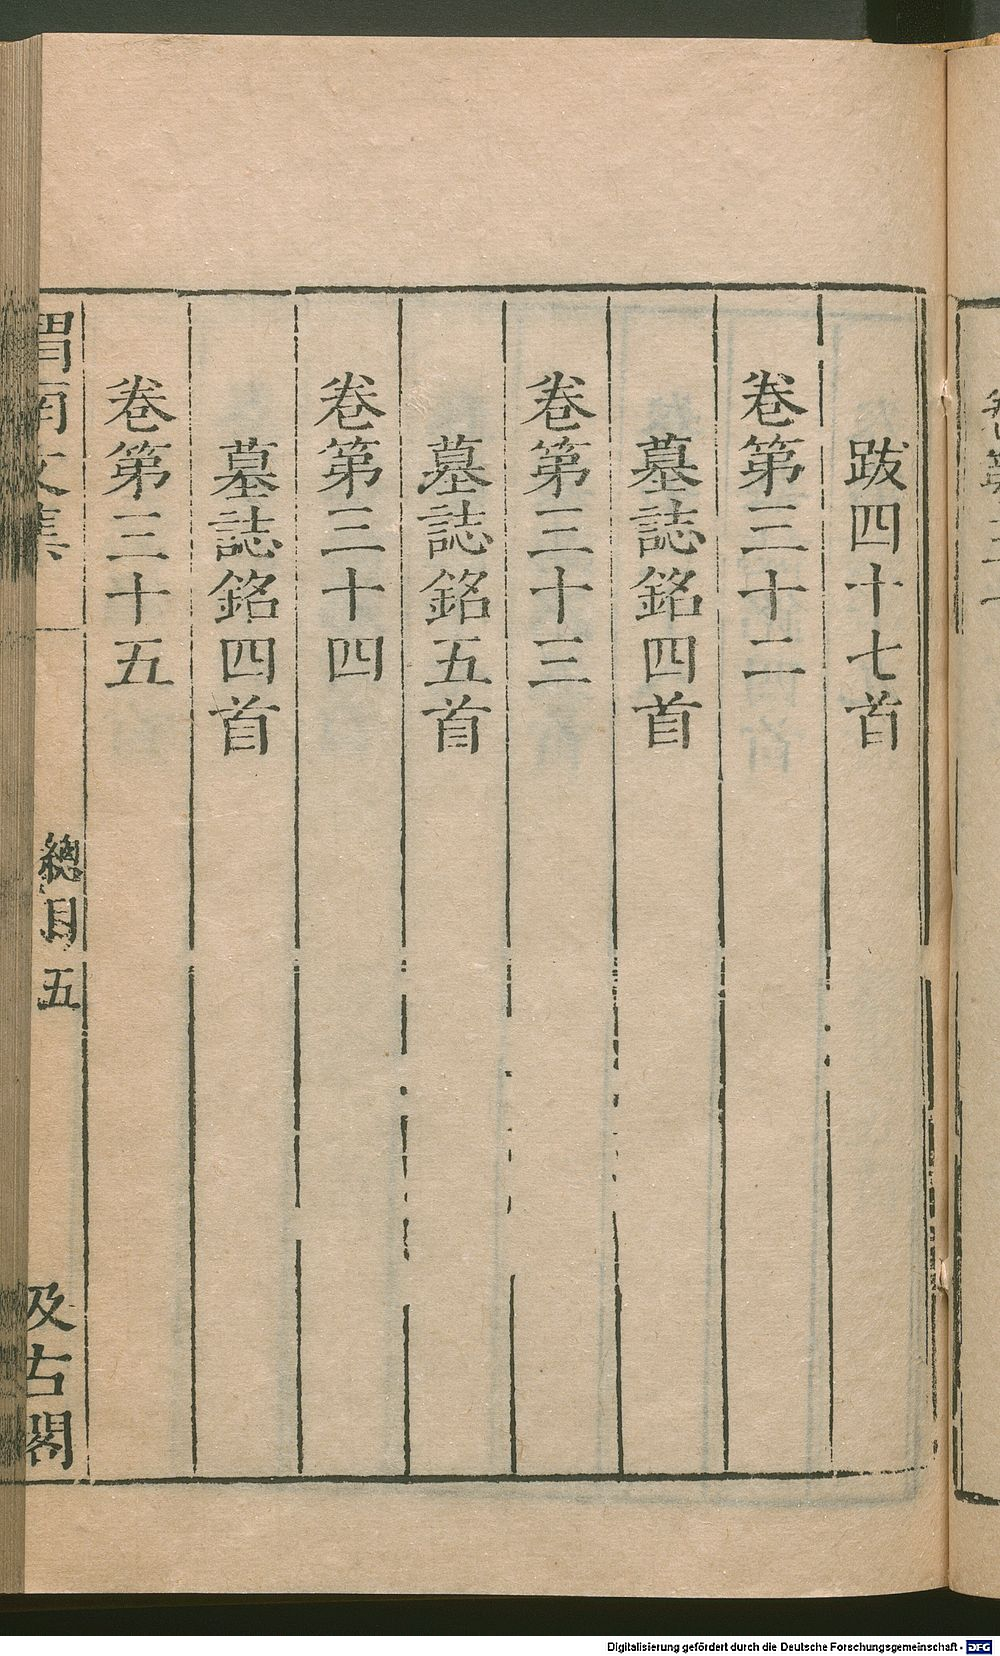 跋四十七首
卷第三十二
墓誌銘四首
卷第三十三
墓誌銘五首
卷第三十四
墓誌銘四首
卷第三十五
渭南文集
總目五
汲古閣
Digitalisierung gefördert durch die Deutsche Forschungsgemeinschaft - DFG